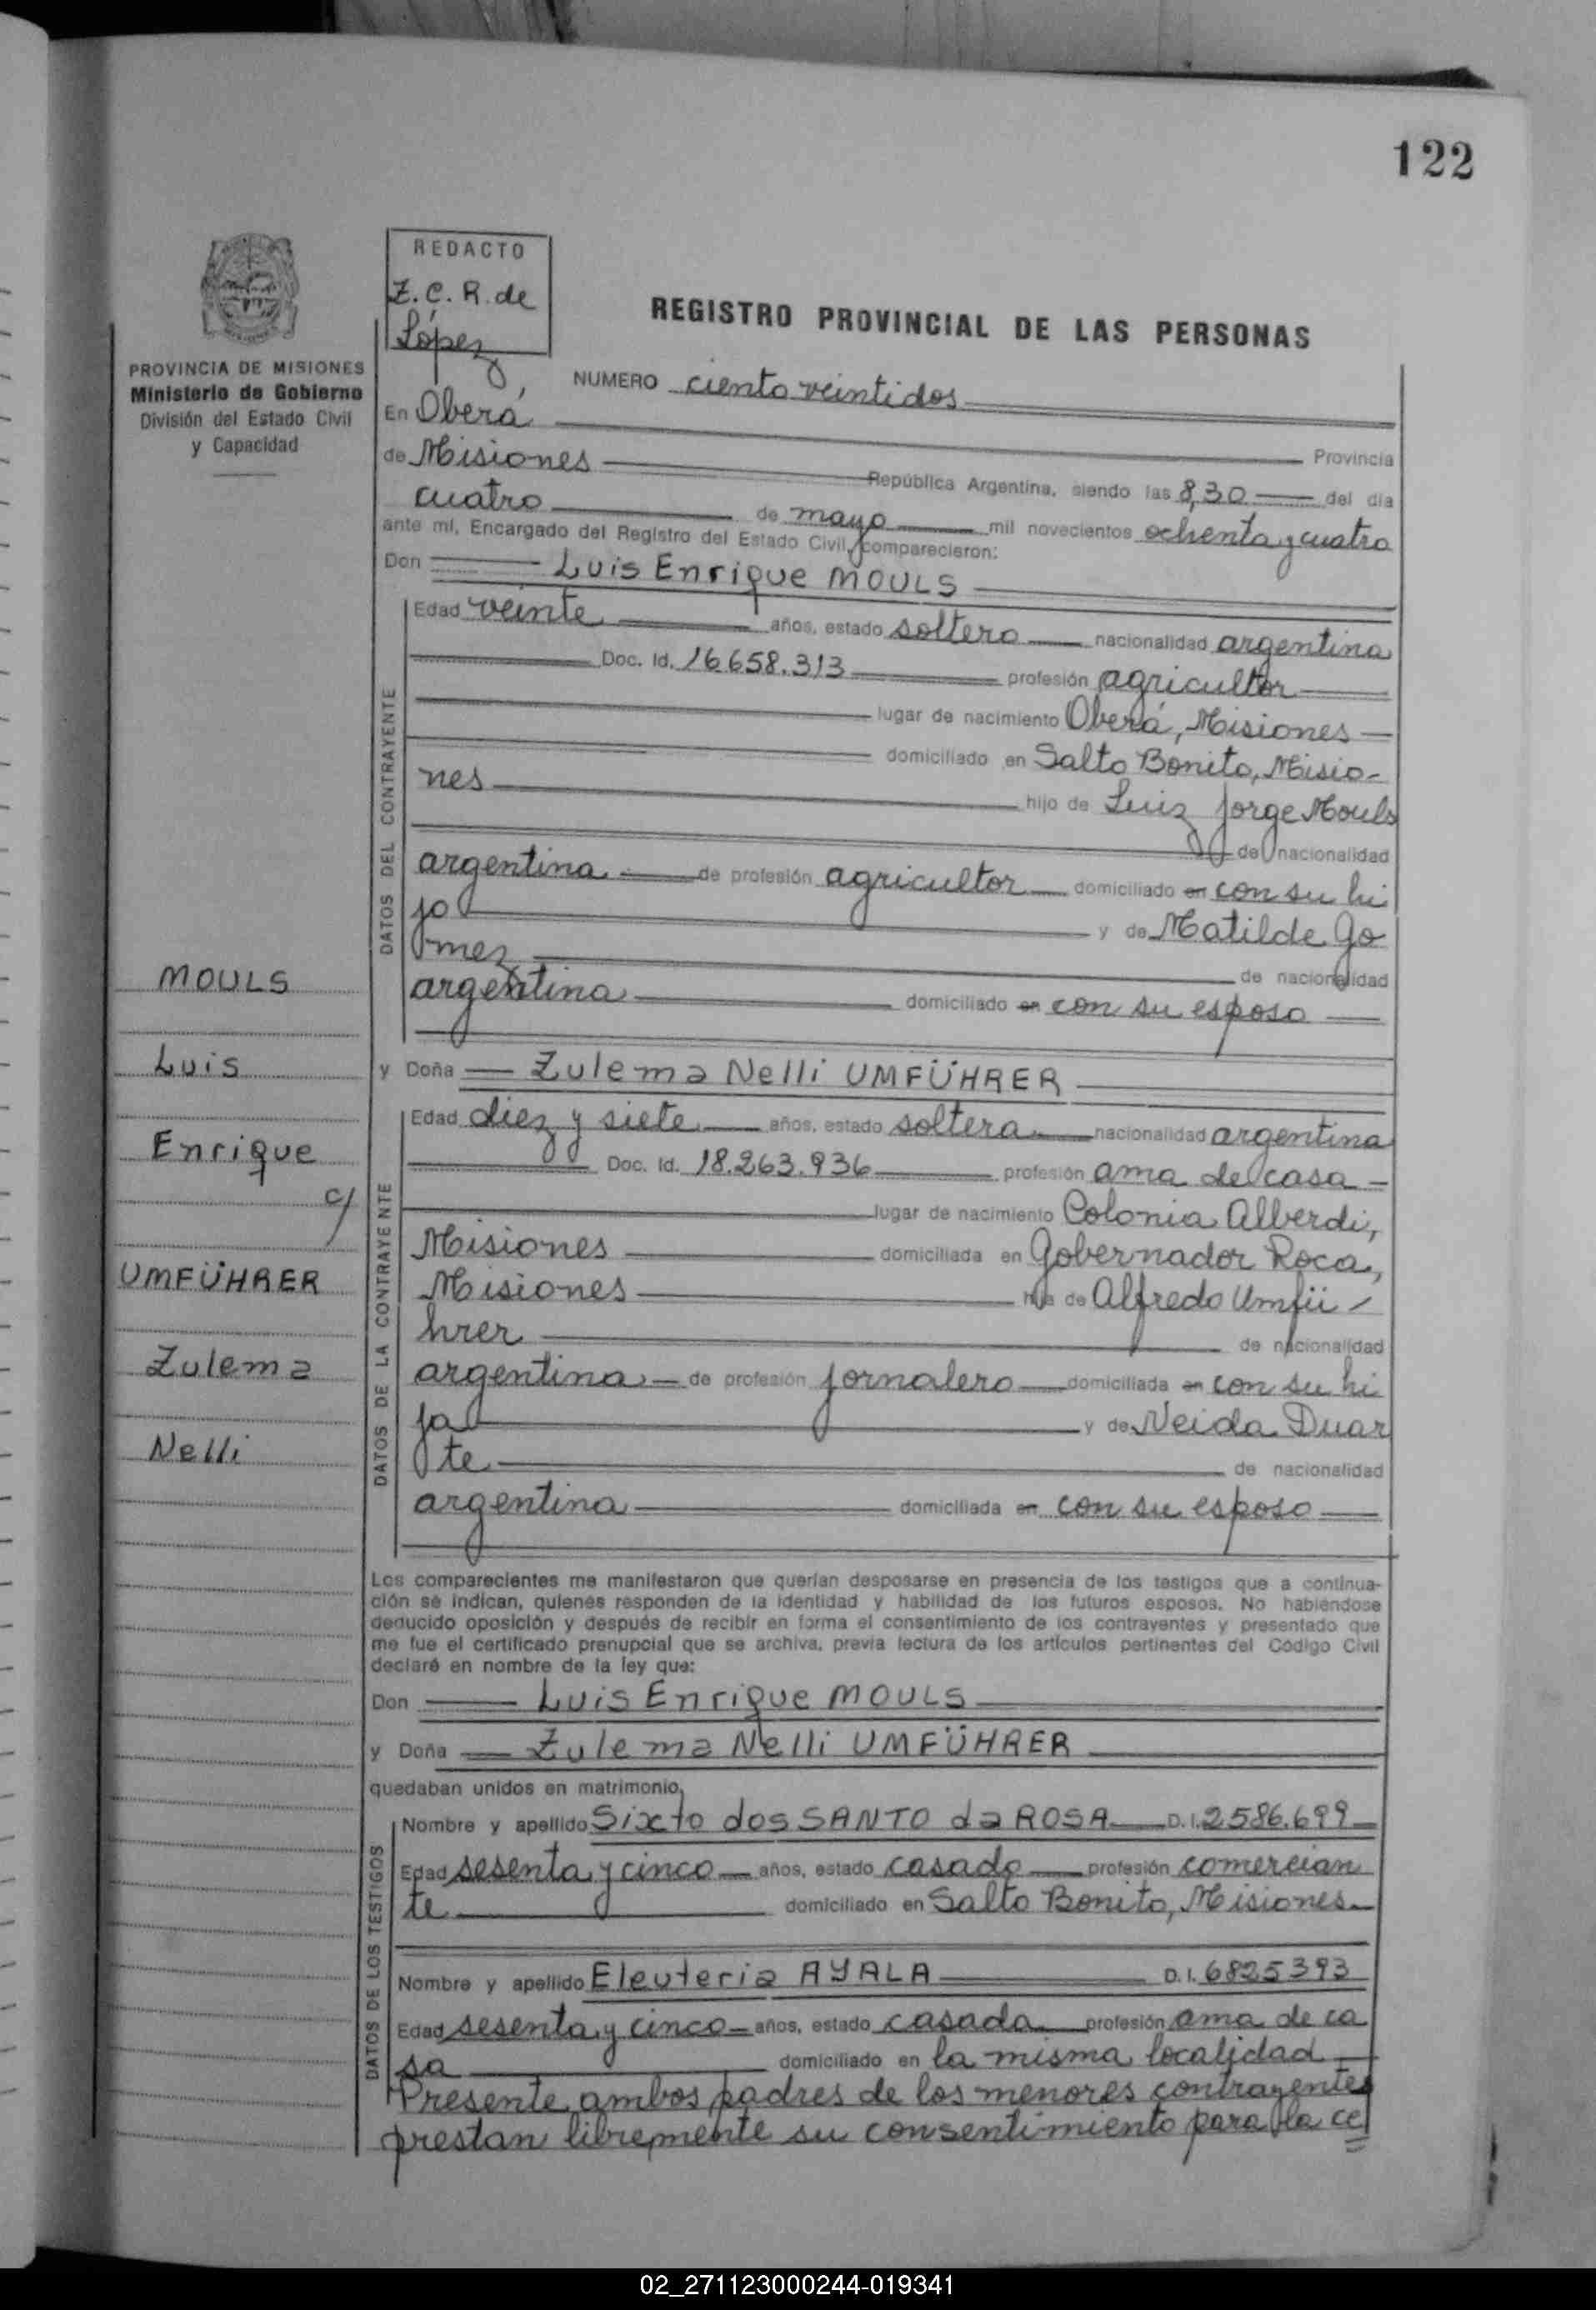 122
REDACTO
Z. C. R. de
López
REGISTRO PROVINCIAL DE LAS PERSONAS
PROVINCIA DE MISIONES
Ministerio de Gobierno
División del Estado Civil
y Capacidad
NUMERO ciento veintidos
En Oberá
Provincia
de Misiones República Argentina, siendo las 8,30 del día
cuatro de mayo mil novecientos ochenta y cuatro
ante mí, Encargado del Registro del Estado Civil, comparecieron:
Don Luis Enrique MOULS
DATOS DEL CONTRAYENTE
Edad veinte años, estado soltero nacionalidad argentina
Doc. Id. 16.658.313 profesión agricultor
lugar de nacimiento Oberá, Misiones
domiciliado en Salto Bonito, Misio-
nes hijo de Luiz Jorge Mouls
de nacionalidad
argentina de profesión agricultor domiciliado en con su hi
jo y de Matilde Go
mez de nacionalidad
argentina domiciliado en con su esposo
MOULS
Luis
Enrique
c/
UMFÜHRER
Zulema
Nelli
y Doña Zulema Nelli UMFÜHRER
DATOS DE LA CONTRAYENTE
Edad diez y siete años, estado soltera nacionalidad argentina
Doc. Id. 18.263.936 profesión ama de casa
lugar de nacimiento Colonia Alberdi,
Misiones domiciliada en Gobernador Roca,
Misiones hija de Alfredo Umfü
hrer de nacionalidad
argentina de profesión jornalero domiciliada en con su hi
ja y de Neida Duar
te de nacionalidad
argentina domiciliada en con su esposo
Los comparecientes me manifestaron que querían desposarse en presencia de los testigos que a continua-
ción se indican, quienes responden de la identidad y habilidad de los futuros esposos. No habiéndose
deducido oposición y después de recibir en forma el consentimiento de los contrayentes y presentado que
me fue el certificado prenupcial que se archiva, previa lectura de los artículos pertinentes del Código Civil
declaré en nombre de la ley que:
Don Luis Enrique MOULS
y Doña Zulema Nelli UMFÜHRER
quedaban unidos en matrimonio,
DATOS DE LOS TESTIGOS
Nombre y apellido Sixto dos SANTO da ROSA D.I. 2586.699
Edad sesenta y cinco años, estado casado profesión comercian
te domiciliado en Salto Bonito, Misiones
Nombre y apellido Eleuteria AYALA D.I. 6825393
Edad sesenta y cinco años, estado casada profesión ama de ca
sa domiciliado en la misma localidad
Presente ambos padres de los menores contrayentes
prestan libremente su consentimiento para la ce
02_271123000244-019341